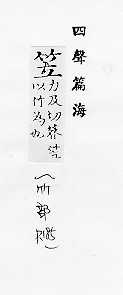 四聲篇海
笠力及切簦笠
以竹為也
(竹部